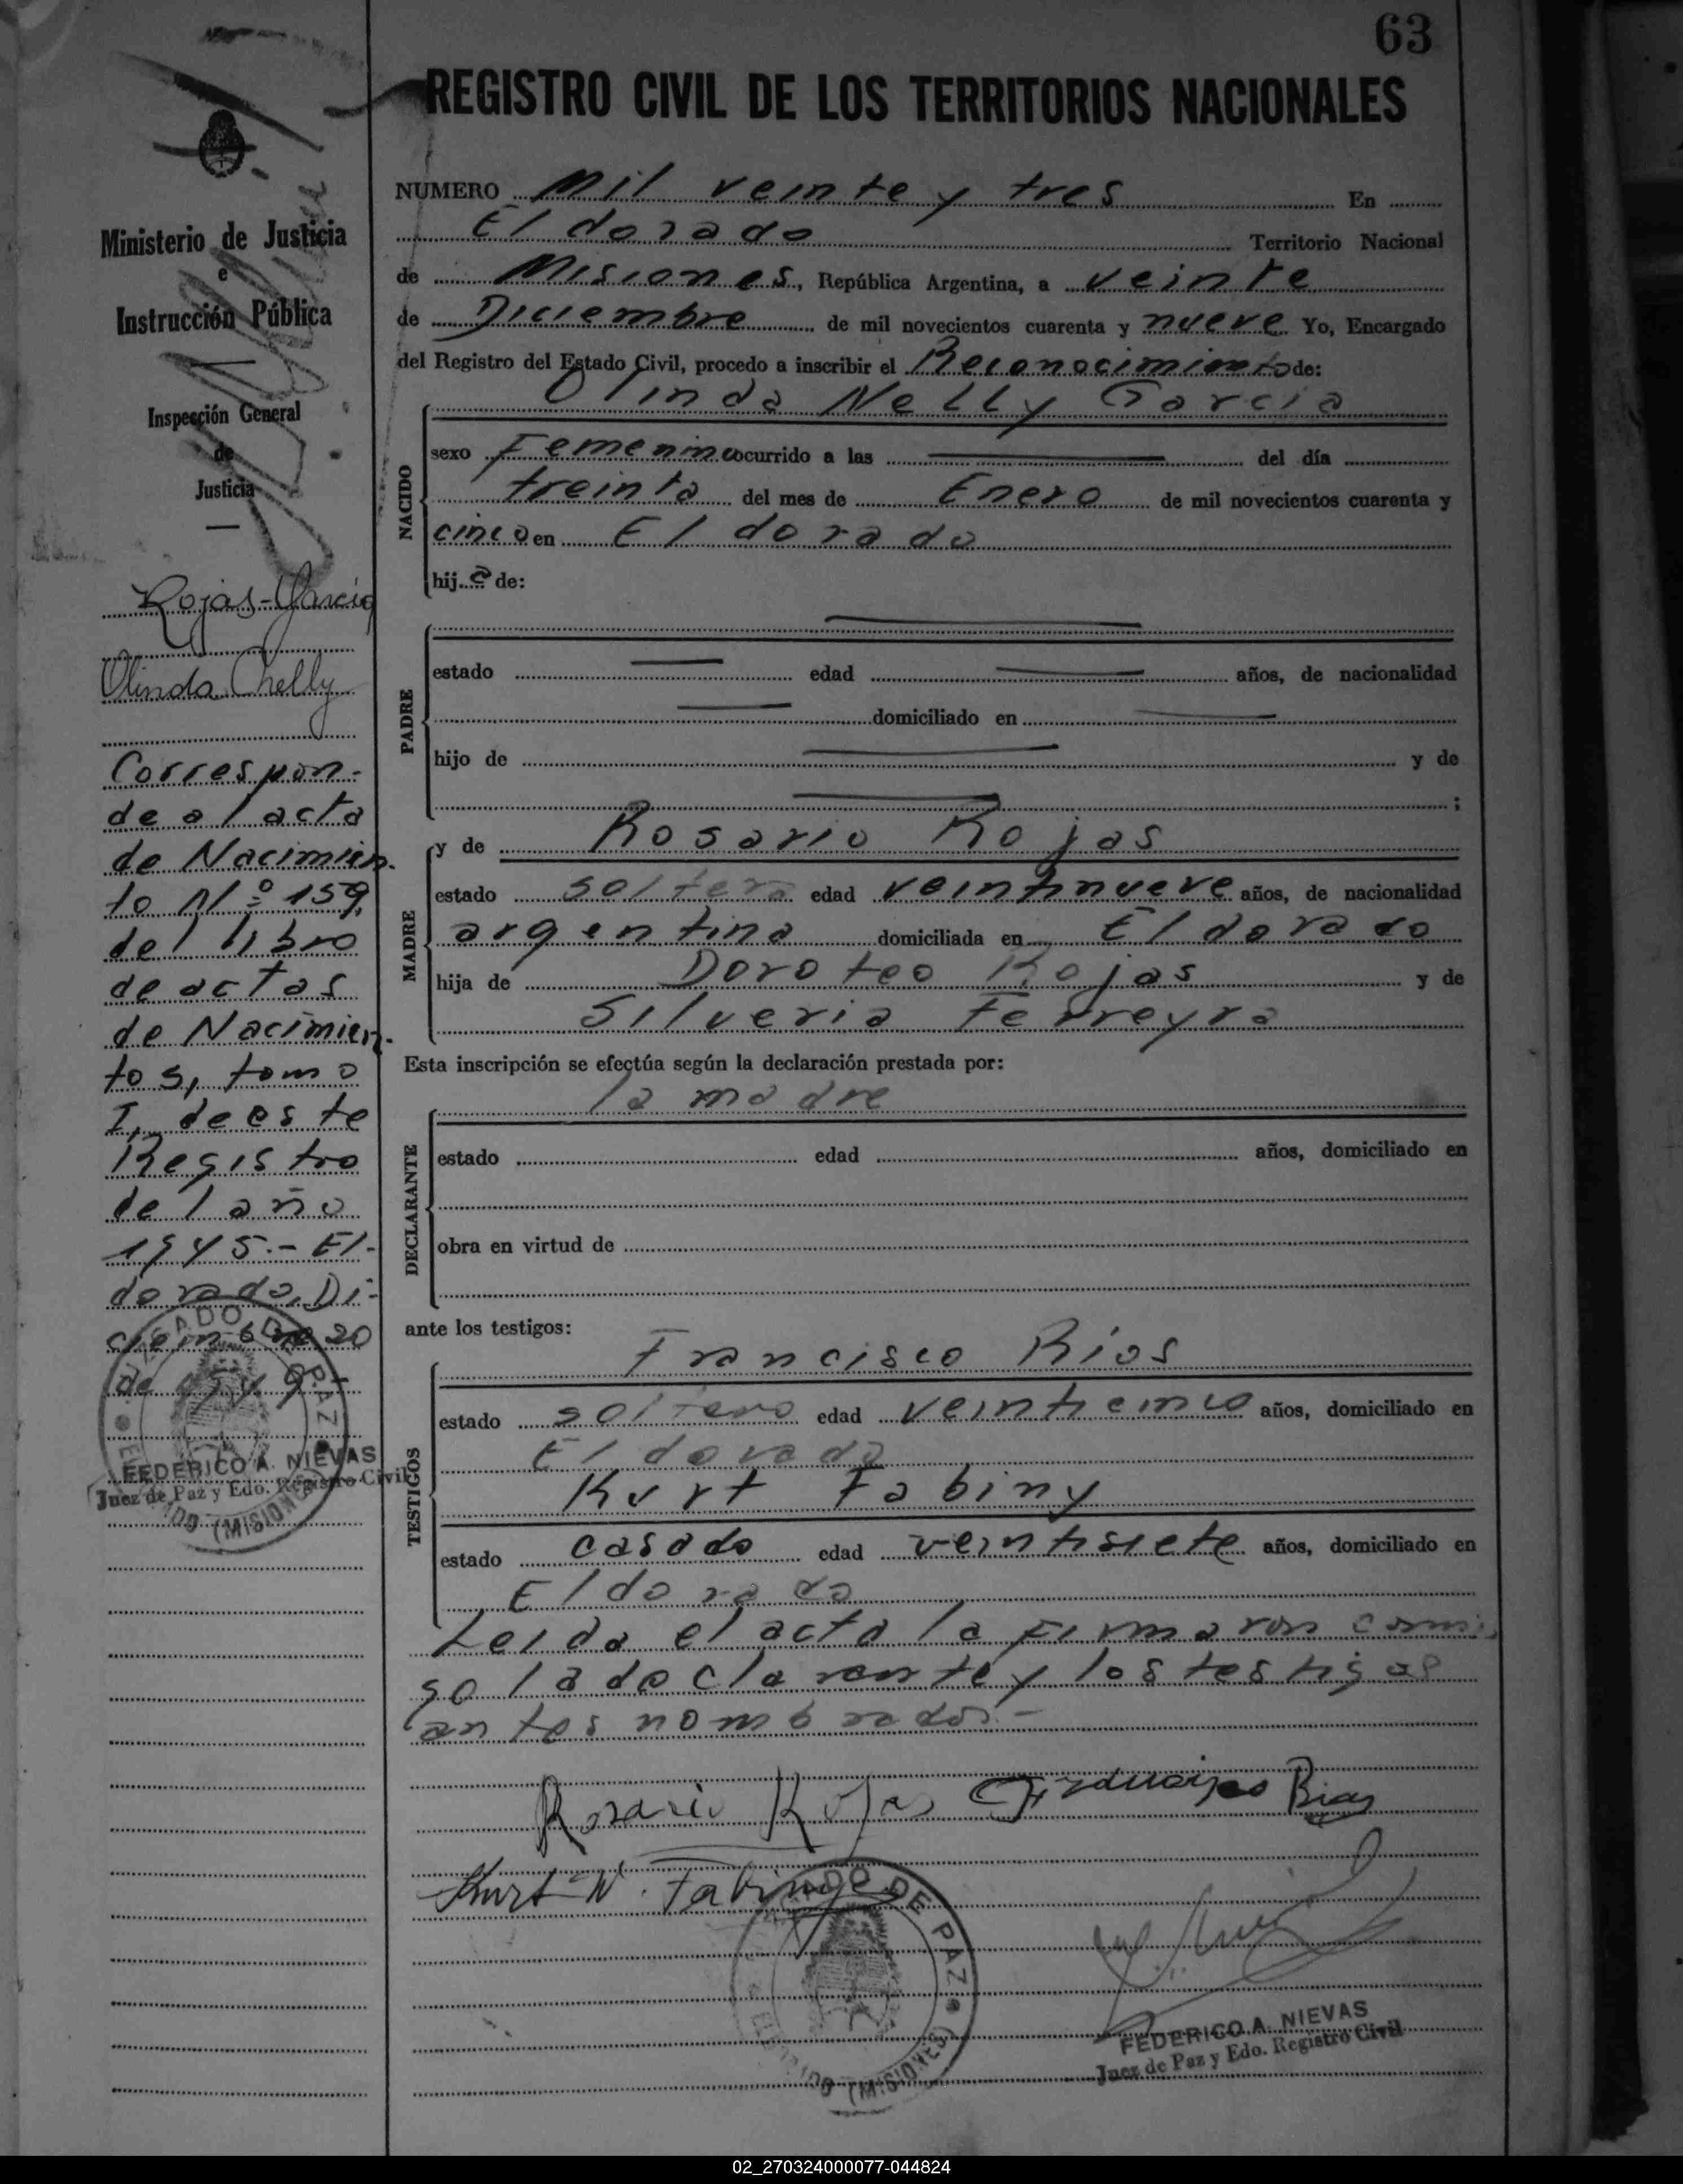 63
REGISTRO CIVIL DE LOS TERRITORIOS NACIONALES
Ministerio de Justicia
e
Instrucción Pública
Inspección General
de
Justicia
Rojas-Garcia
Olinda Nelly
Correspon-
de al acta
de Nacimien-
to Nº 159,
del libro
de actas
de Nacimien-
tos, tomo
I, de este
Registro
del año
1945.- El-
dorado, Di-
ciembre 20
de 1949.-
JUZGADO DE PAZ
FEDERICO A. NIEVAS
Juez de Paz y Edo. Registro Civil
(MISIONES)
NUMERO Mil veinte y tres En
Eldorado Territorio Nacional
de Misiones, República Argentina, a veinte
de Diciembre de mil novecientos cuarenta y nueve Yo, Encargado
del Registro del Estado Civil, procedo a inscribir el Reconocimiento de:
Olinda Nelly Garcia
NACIDO
sexo Femenino ocurrido a las del día
treinta del mes de Enero de mil novecientos cuarenta y
cinco en Eldorado
hij a de:
PADRE
estado edad años, de nacionalidad
domiciliado en
hijo de y de
;
MADRE
y de Rosario Rojas
estado soltera edad veintinueve años, de nacionalidad
argentina domiciliada en Eldorado
hija de Doroteo Rojas y de
Silveria Ferreyra
Esta inscripción se efectúa según la declaración prestada por:
la madre
DECLARANTE
estado edad años, domiciliado en
obra en virtud de
ante los testigos:
TESTIGOS
Francisco Rios
estado soltero edad veinticinco años, domiciliado en
Eldorado
Kurt Fabiny
estado casado edad veintisiete años, domiciliado en
Eldorado
Leida el acta la firmaron conmi
go la declarante y los testigos
antes nombrados.-
Rosario Rojas
Kurt W. Fabiny
JUZGADO DE PAZ
ELDORADO (MISIONES)
FEDERICO A. NIEVAS
Juez de Paz y Edo. Registro Civil
02_270324000077-044824